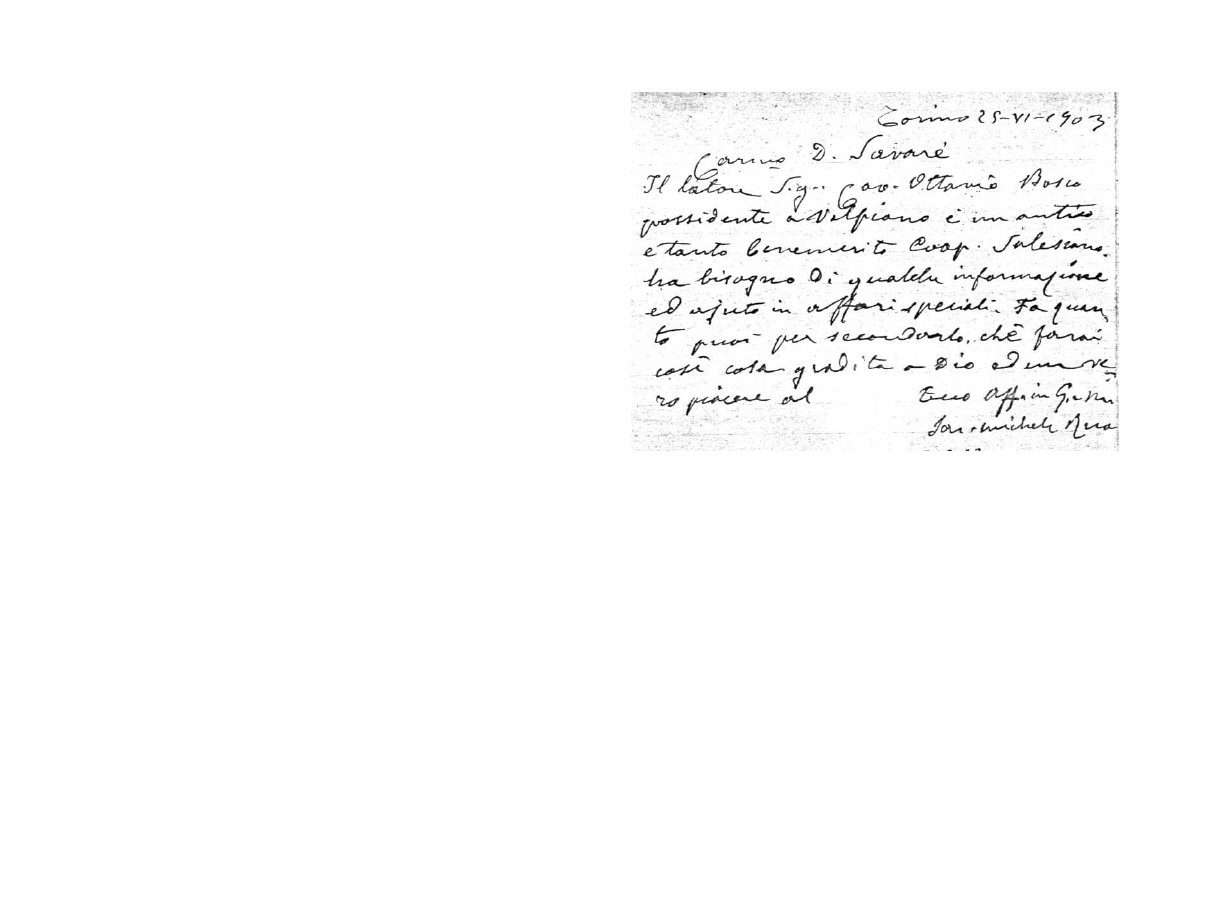 Torino 25-VI-1903
Car.mo D. Savarè
Il latore Sig.r Cav. Ottavio Bosco
possidente a Volpiano è un antico
e tanto benemerito Coop. Salesiano.
ha bisogno di qualche informazione
ed ajuto in affari speciali. Fa quan
to puoi per secondarlo, chè farai
così cosa gradita a Dio ed un ve
ro piacere al Tuo Aff. in G. e M.
Sac. Michele Rua